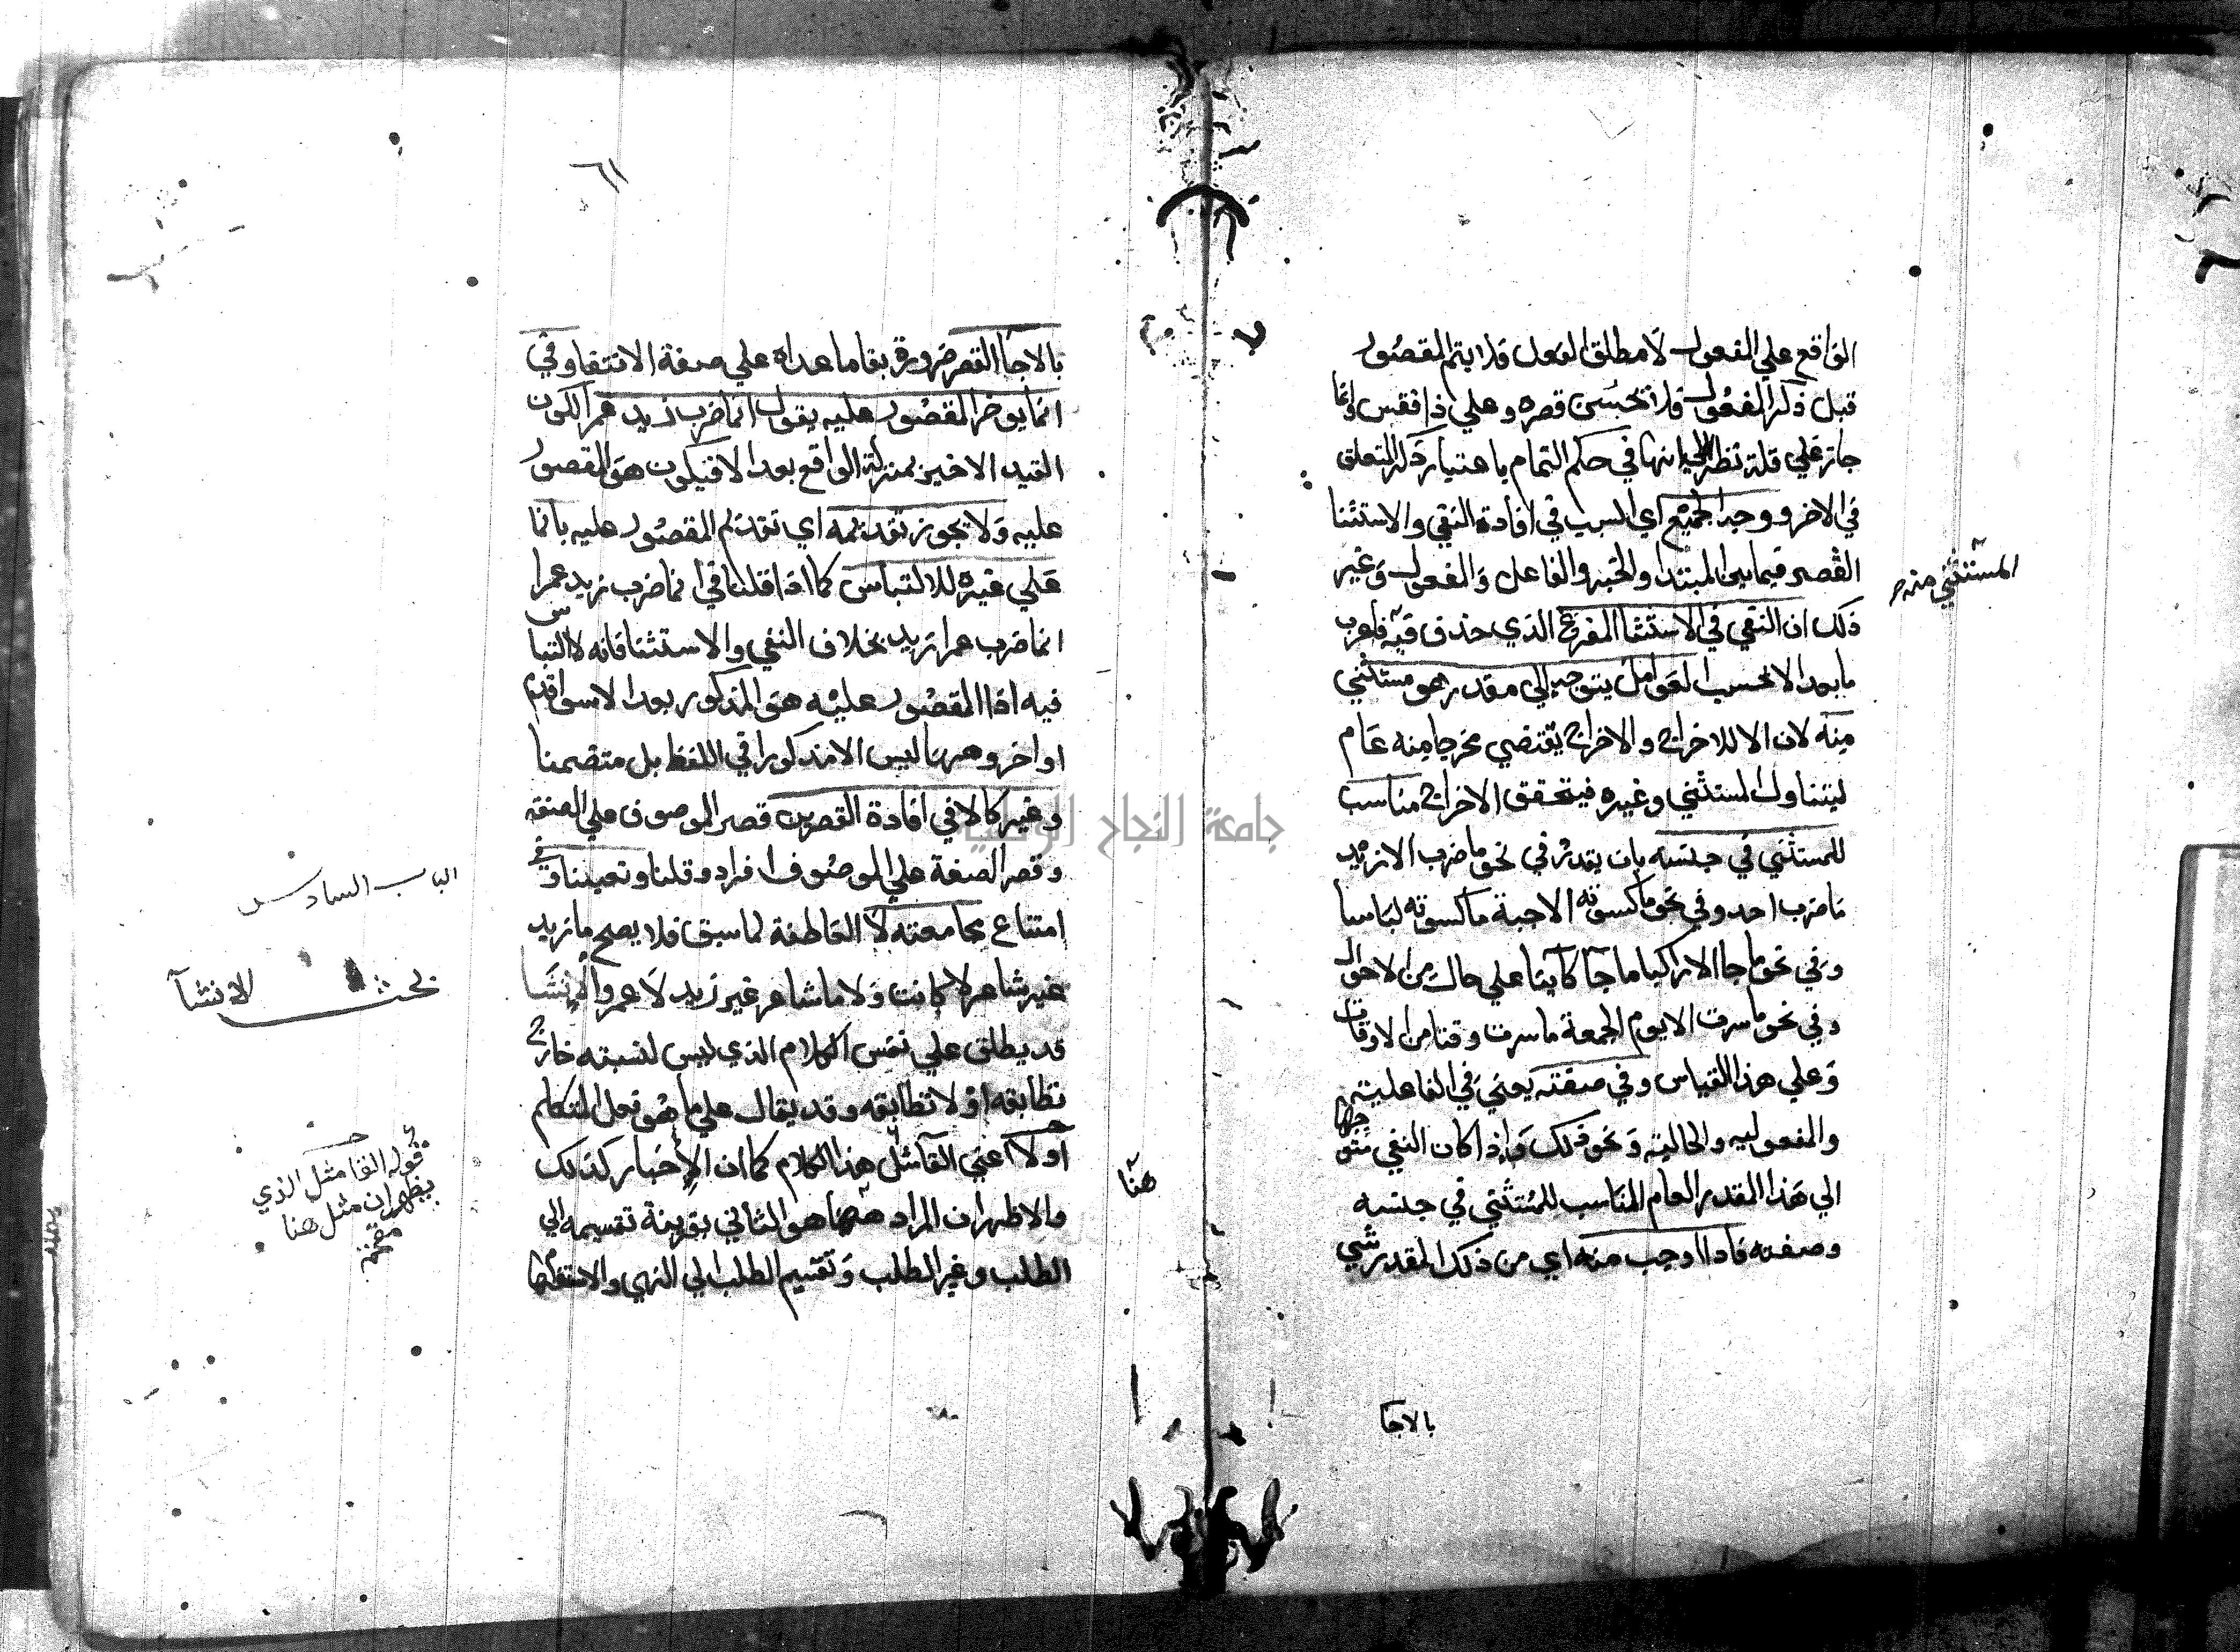 الواقع علي المفعول لا مطلق الفعل فلا يتم المقصور
قبل ذكر المفعول فلا تحسن قصره وعلي ذا فقس وانما
جاز علي قلة نظرا الي انها في حكم التمام باعتبار ذكر المتعلق
في الاخر ووجه الجميع اي السبب في افادة النفي والاستثنا
القصر فيما بين المبتدا والخبر والفاعل والمفعول وغير
ذلك ان النفي في الاستثنا المفرغ الذي حذف فيه فاعرب
ما بعد الا بحسب العوامل يتوجه الي مقدر هو مستثني
منه لان الا للاخراج والاخراج يقتضي مخرجا منه عام
ليتناول المستثني وغيره فيتحقق الاخراج مناسب
للمستثني في جنسه بان يقدر في نحو ما ضرب الا زيد
ما ضرب احد وفي نحو ما كسوته الا جبة ما كسوته لباسا
وفي نحو ما جا الا راكبا ما جآ كآينا علي حال من الاحوال
وفي نحو ما سرت الا يوم الجمعة ما سرت وقتا من الاوقات
وعلي هذا القياس وفي صفته يعني في الفاعلية
والمفعولية والحالية ونحو ذلك واذا كان النفي متوجها
الي هذا المقدر العام المناسب للمستثني في جنسه
وصفته فاذا اوجب منه اي من ذلك المقدر شي
بالاجآ
المستثني منه
٦١
بالا جآ القصر ضرورة بقا ما عداه علي صفة الانتفا وفي
انما يوخر المقصور عليه يقول انما ضرب زيد عمرا لكون
القيد الاخير بمنزلة الواقع بعد الا فيكون هو المقصور
عليه ولا يجوز تقديمه اي تقديم المقصور عليه بانما
علي غيره للالتباس كما اذا قلنا في انما ضرب زيد عمرا
انما ضرب عمرا زيد بخلاف النفي والاستثنا فانه لا التباس
فيه اذا المقصور عليه هو المذكور بعد الا سوا قدم
او اخر وههنا ليس الا مذكورا في اللفظ بل متضمنا
وغير كالا في افادة القصرين قصر الموصوف علي الصفة
وقصر الصفة علي الموصوف افراد وقلبا وتعيينا وفي
امتناع مجامعته لا العاطفة لما سبق فلا يصح ما زيد
غير شاعر لا كاتب ولا ما شاعر غير زيد لا عمرو الانشا
قد يطلق علي نفس الكلام الذي ليس لنسبته خارج
تطابقه او لا تطابقه وقد يقال علي ما هو فعل المتكلم
اولا اعني القآ مثل هذا الكلام كما ان الاخبار كذلك
والاظهر ان المراد ههنا هو الثاني بقرينة تقسيمه الي
الطلب وغير الطلب وتقسيم الطلب الي النهي والاستفهام
هنا
الباب السادس
بحث الانشآ
قوله القا مثل الذي
يظهر ان مثل هنا
مقحمة
جامعة النجاح الوطنية